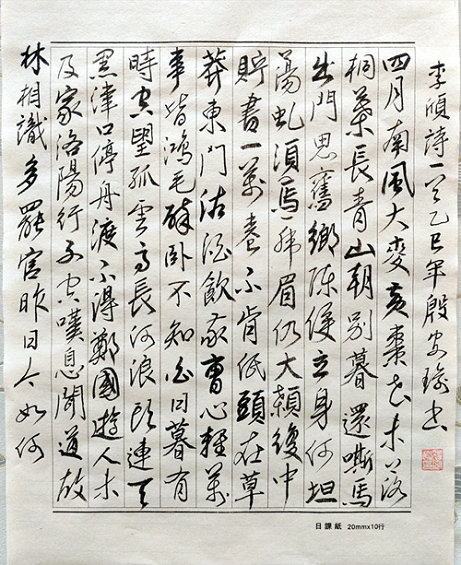 李頎詩一首乙巳年殷安書
四月南風大麥黃棗花未落
桐葉長青山朝別暮還嘶馬
出門思舊鄉陳侯立身何坦
蕩虬須虎眉仍大顙腹中
貯書一萬卷不肯低頭在草
莽東門沽酒飲我曹心輕萬
事皆鴻毛醉臥不知白日暮有
時空望孤雲高長河浪頭連天
黑津口停舟渡不得鄭國遊人未
及家洛陽行子空嘆息聞道故
林相識多罷官昨日今如何
日課紙 20mmx10行